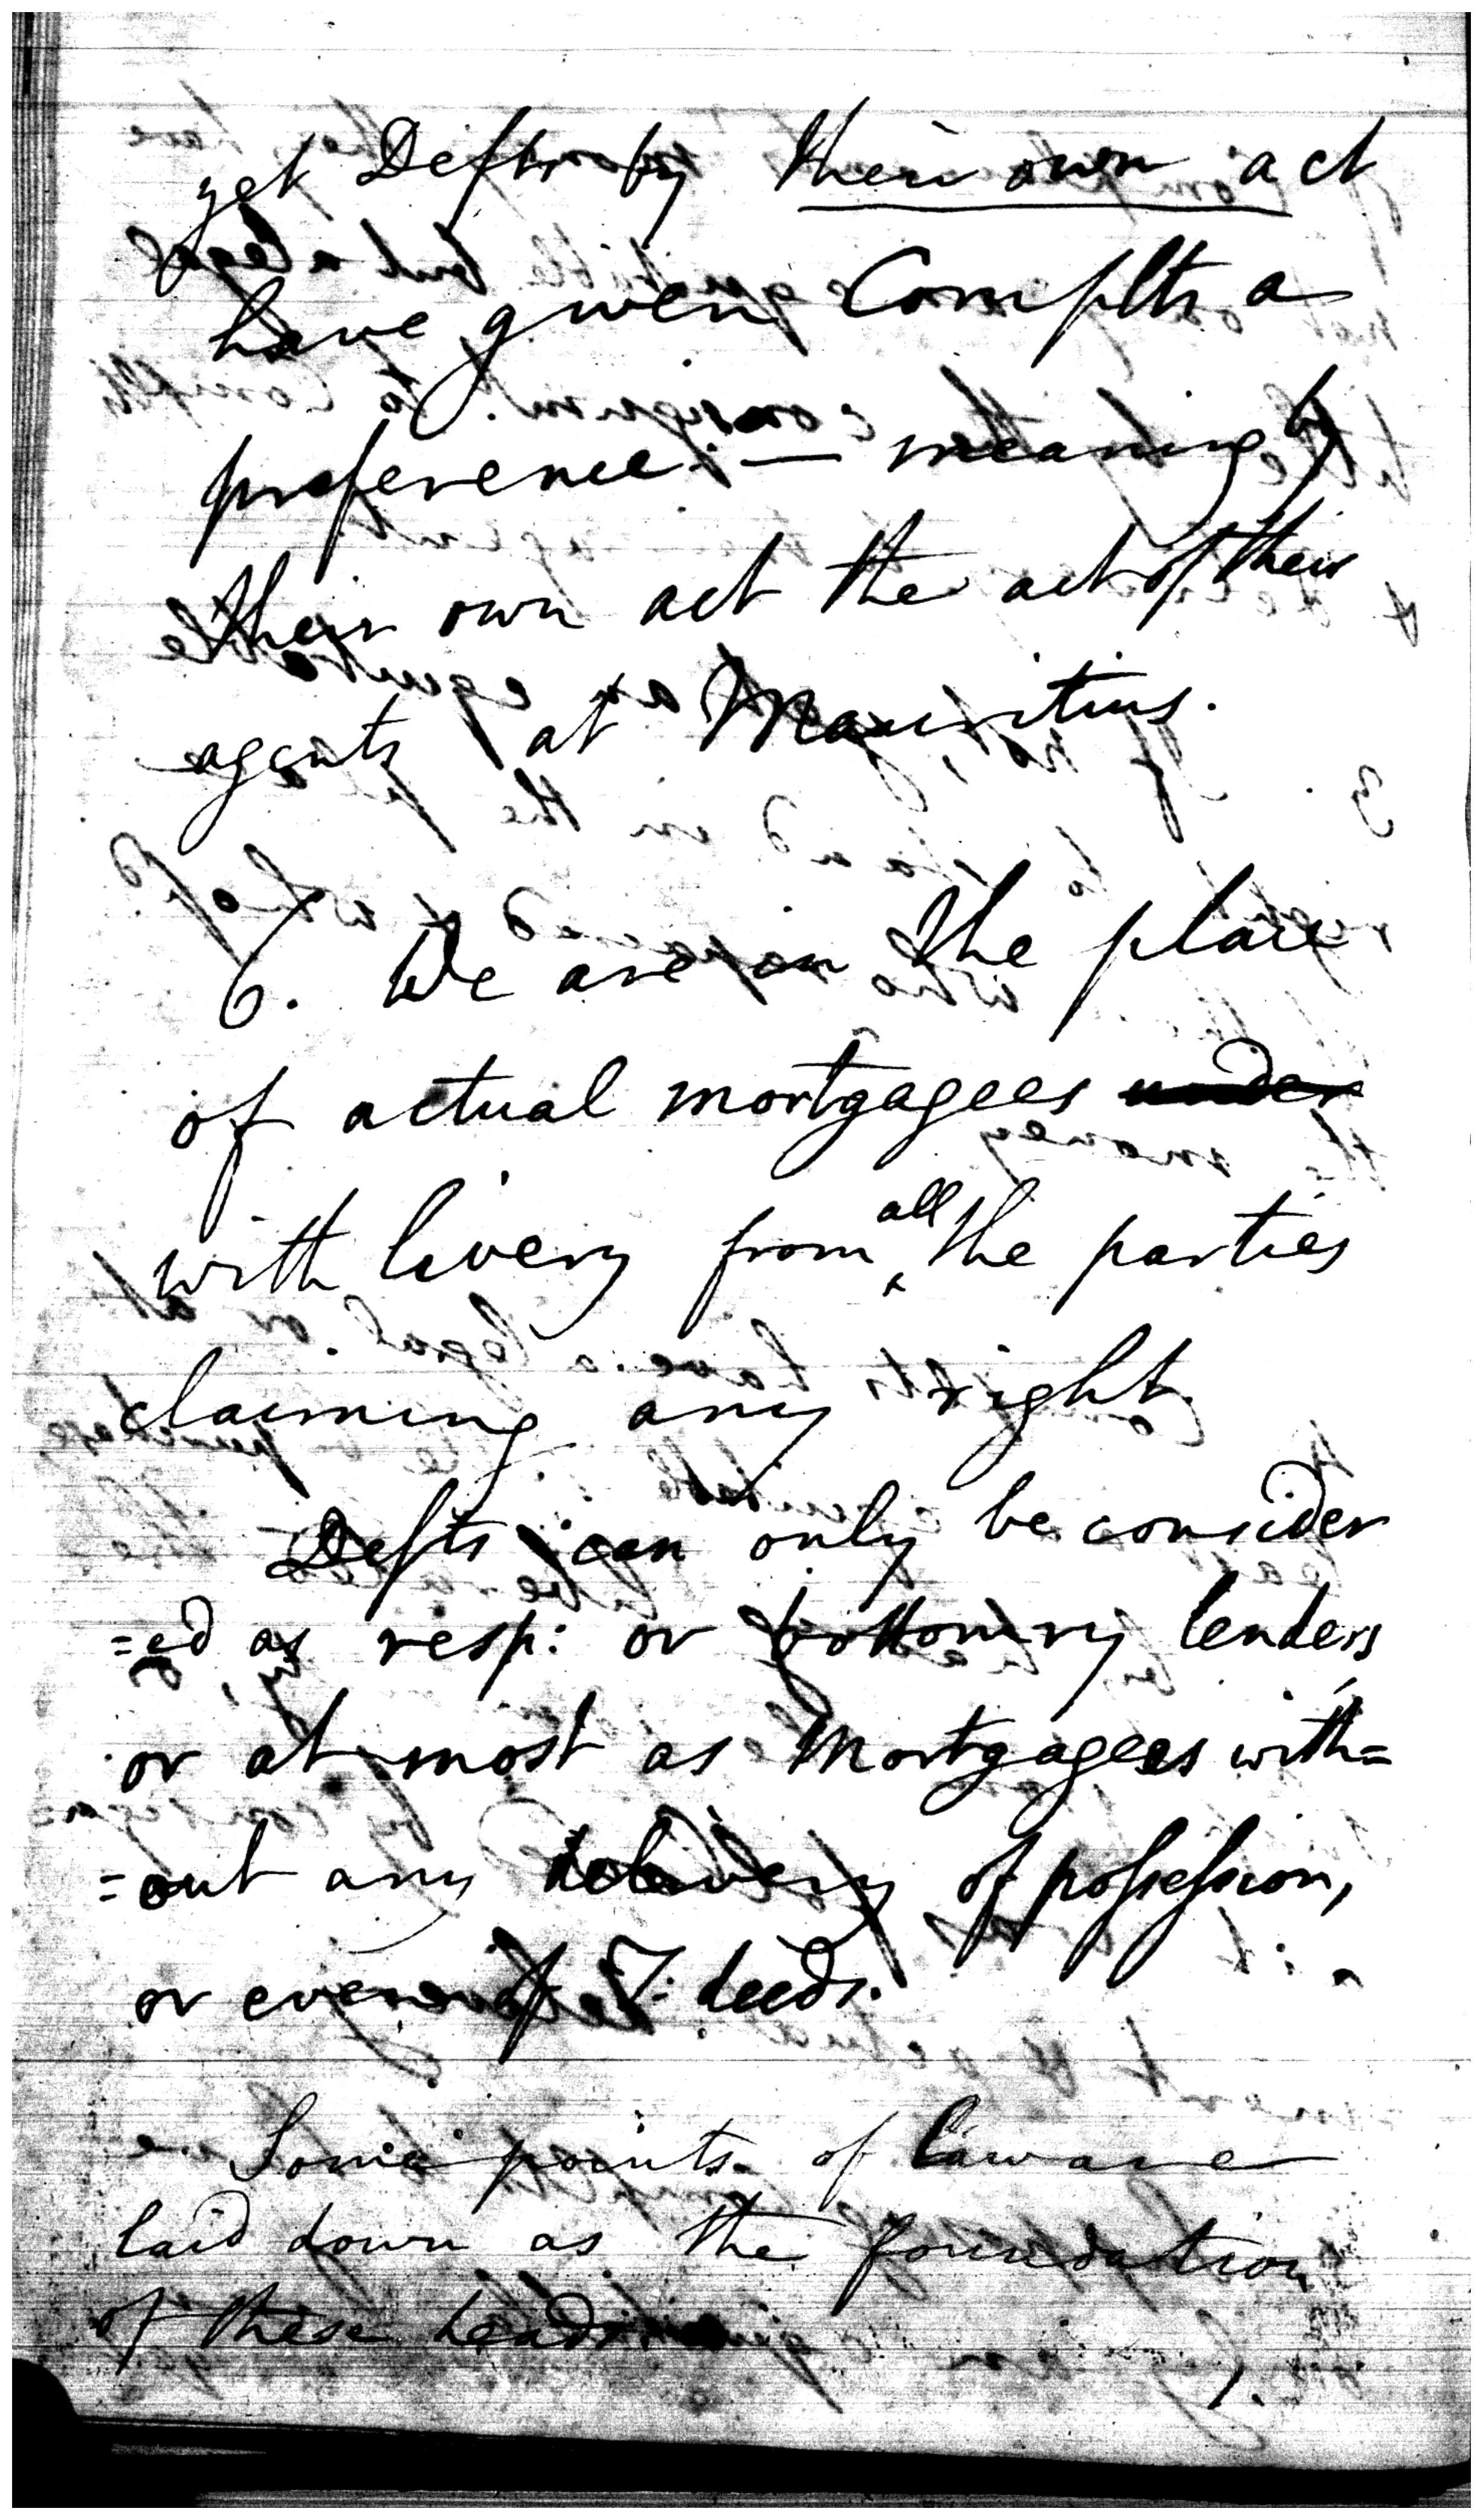 yet Defts by their own act
have given Complts a
preference — meaning by
their own act the act of their
agents at Mauritius.
6. We are in the place
of actual mortgagees under
with livery from all the parties
claiming any right
Defts can only be consider
=ed as resp: or bottomry lenders,
or at most as Mortgagees with=
=out any delivery of possession,
or even of T: deeds.
Some points of Law are
laid down as the foundation
of these heads